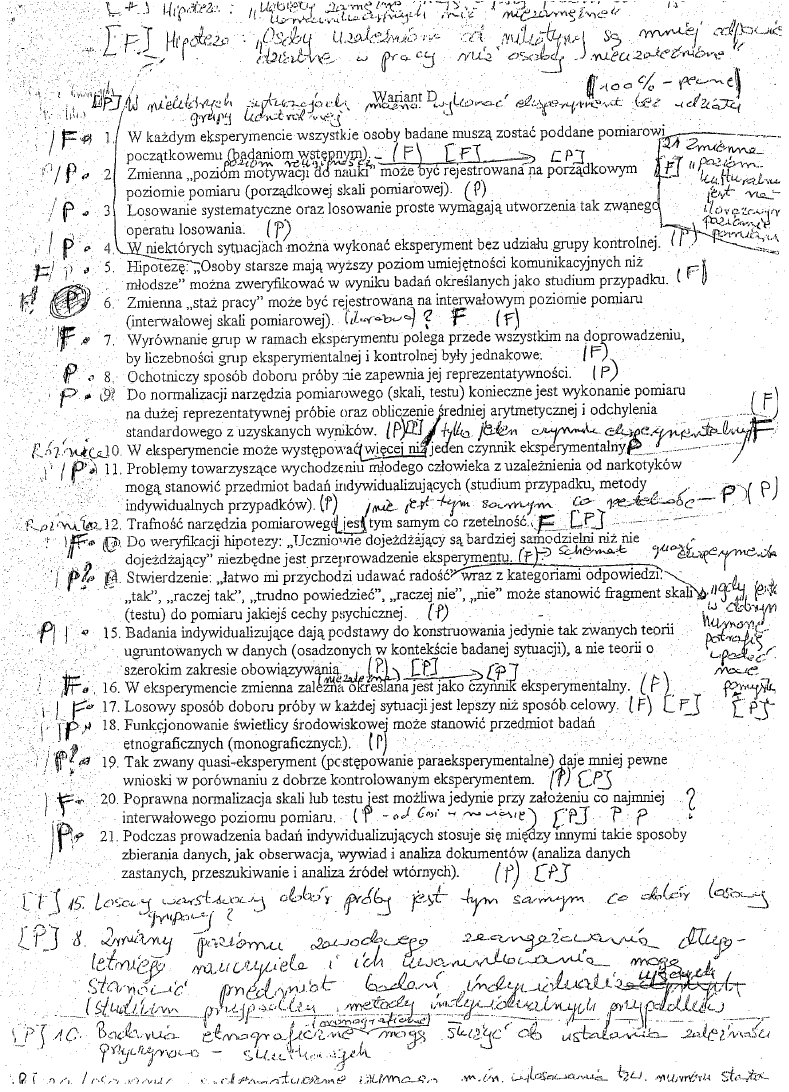 [F] Hipoteza: „Osoby uzależnione od nikotyny są mniej odpowie
dzialne w pracy niż osoby nieuzależnione"
100% - pewne
Wariant D
[P] W niektórych sytuacjach można wykonać eksperyment bez udziału
grupy kontrolnej
F 1. W każdym eksperymencie wszystkie osoby badane muszą zostać poddane pomiarowi
początkowemu (badaniom wstępnym) - (F) [F] → [P]
poziom religijności
P 2. Zmienna „poziom motywacji do nauki" może być rejestrowana na porządkowym
poziomie pomiaru (porządkowej skali pomiarowej). (P)
21 Zmienna
[F] „poziom
jest na
ilorazowym
poziomie
pomiaru
P. 3. Losowanie systematyczne oraz losowanie proste wymagają utworzenia tak zwanego
operatu losowania. (P)
P. 4. W niektórych sytuacjach można wykonać eksperyment bez udziału grupy kontrolnej. (P)
F 5. Hipotezę: „Osoby starsze mają wyższy poziom umiejętności komunikacyjnych niż
młodsze" można zweryfikować w wyniku badań określanych jako studium przypadku. (F)
P. 6. Zmienna „staż pracy" może być rejestrowana na interwałowym poziomie pomiaru
(interwałowej skali pomiarowej). ? F (F)
F. 7. Wyrównanie grup w ramach eksperymentu polega przede wszystkim na doprowadzeniu,
by liczebności grup eksperymentalnej i kontrolnej były jednakowe. (F)
P. 8. Ochotniczy sposób doboru próby nie zapewnia jej reprezentatywności. (P)
P. 9? Do normalizacji narzędzia pomiarowego (skali, testu) konieczne jest wykonanie pomiaru
na dużej reprezentatywnej próbie oraz obliczenie średniej arytmetycznej i odchylenia (F)
standardowego z uzyskanych wyników. (P) [P] tylko jeden czynnik eksperymentalny F
Różnice 10. W eksperymencie może występować więcej niż jeden czynnik eksperymentalny P
P. 11. Problemy towarzyszące wychodzeniu młodego człowieka z uzależnienia od narkotyków
mogą stanowić przedmiot badań indywidualizujących (studium przypadku, metody
indywidualnych przypadków). (P) nie jest tym samym co rzetelność - P (P)
12. Trafność narzędzia pomiarowego jest tym samym co rzetelność. F [P]
F. 13. Do weryfikacji hipotezy: „Uczniowie dojeżdżający są bardziej samodzielni niż nie
dojeżdżający" niezbędne jest przeprowadzenie eksperymentu. (F) → schemat quasi eksperymentu
P? 14. Stwierdzenie: „łatwo mi przychodzi udawać radość" wraz z kategoriami odpowiedzi:
„tak", „raczej tak", „trudno powiedzieć", „raczej nie", „nie" może stanowić fragment skali
(testu) do pomiaru jakiejś cechy psychicznej. (P)
„gdy jestem
w dobrym
humorze
potrafię
nowe
pomysły
[P]
P 15. Badania indywidualizujące dają podstawy do konstruowania jedynie tak zwanych teorii
ugruntowanych w danych (osadzonych w kontekście badanej sytuacji), a nie teorii o
szerokim zakresie obowiązywania (P) [P]
(niezależna) → [P]
F. 16. W eksperymencie zmienna zależna określana jest jako czynnik eksperymentalny. (F)
F. 17. Losowy sposób doboru próby w każdej sytuacji jest lepszy niż sposób celowy. (F) [F]
P. 18. Funkcjonowanie świetlicy środowiskowej może stanowić przedmiot badań
etnograficznych (monograficznych). (P)
P? 19. Tak zwany quasi-eksperyment (postępowanie paraeksperymentalne) daje mniej pewne
wnioski w porównaniu z dobrze kontrolowanym eksperymentem. (P) [P]
F. 20. Poprawna normalizacja skali lub testu jest możliwa jedynie przy założeniu co najmniej
interwałowego poziomu pomiaru. [P] P P ?
P. 21. Podczas prowadzenia badań indywidualizujących stosuje się między innymi takie sposoby
zbierania danych, jak obserwacja, wywiad i analiza dokumentów (analiza danych
zastanych, przeszukiwanie i analiza źródeł wtórnych). (P) [P]
[F] 15. Losowy warstwowy dobór próby jest tym samym co dobór losowy
grupowy?
[P] 8. Zmiany poziomu zawodowego zaangażowania długo-
letniego nauczyciela i ich uwarunkowania mogą
stanowić przedmiot badań indywidualizujących
(studium przypadku, metody indywidualnych przypadków)
[P] 10. Badania etnograficzne (monograficzne) mogą służyć do ustalania zależności
przyczynowo - skutkowych